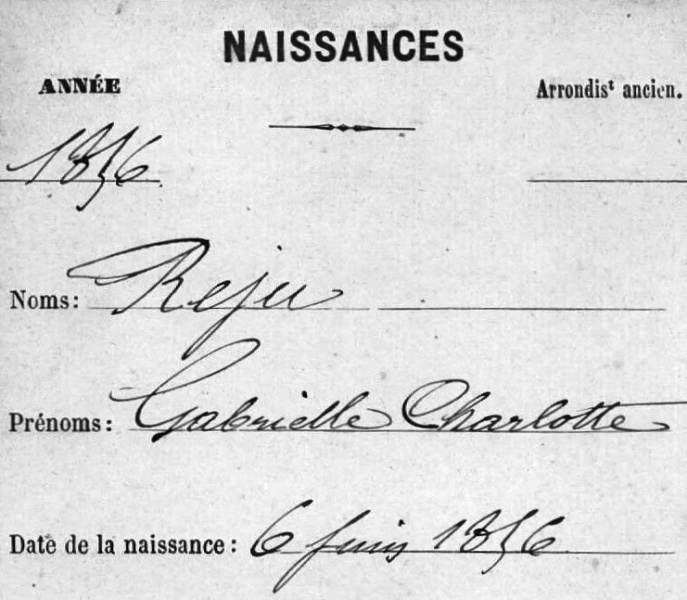 NAISSANCES
ANNÉE
Arrondisᵗ ancien.
1856
Noms: Reju
Prénoms: Gabrielle Charlotte
Date de la naissance: 6 juin 1856